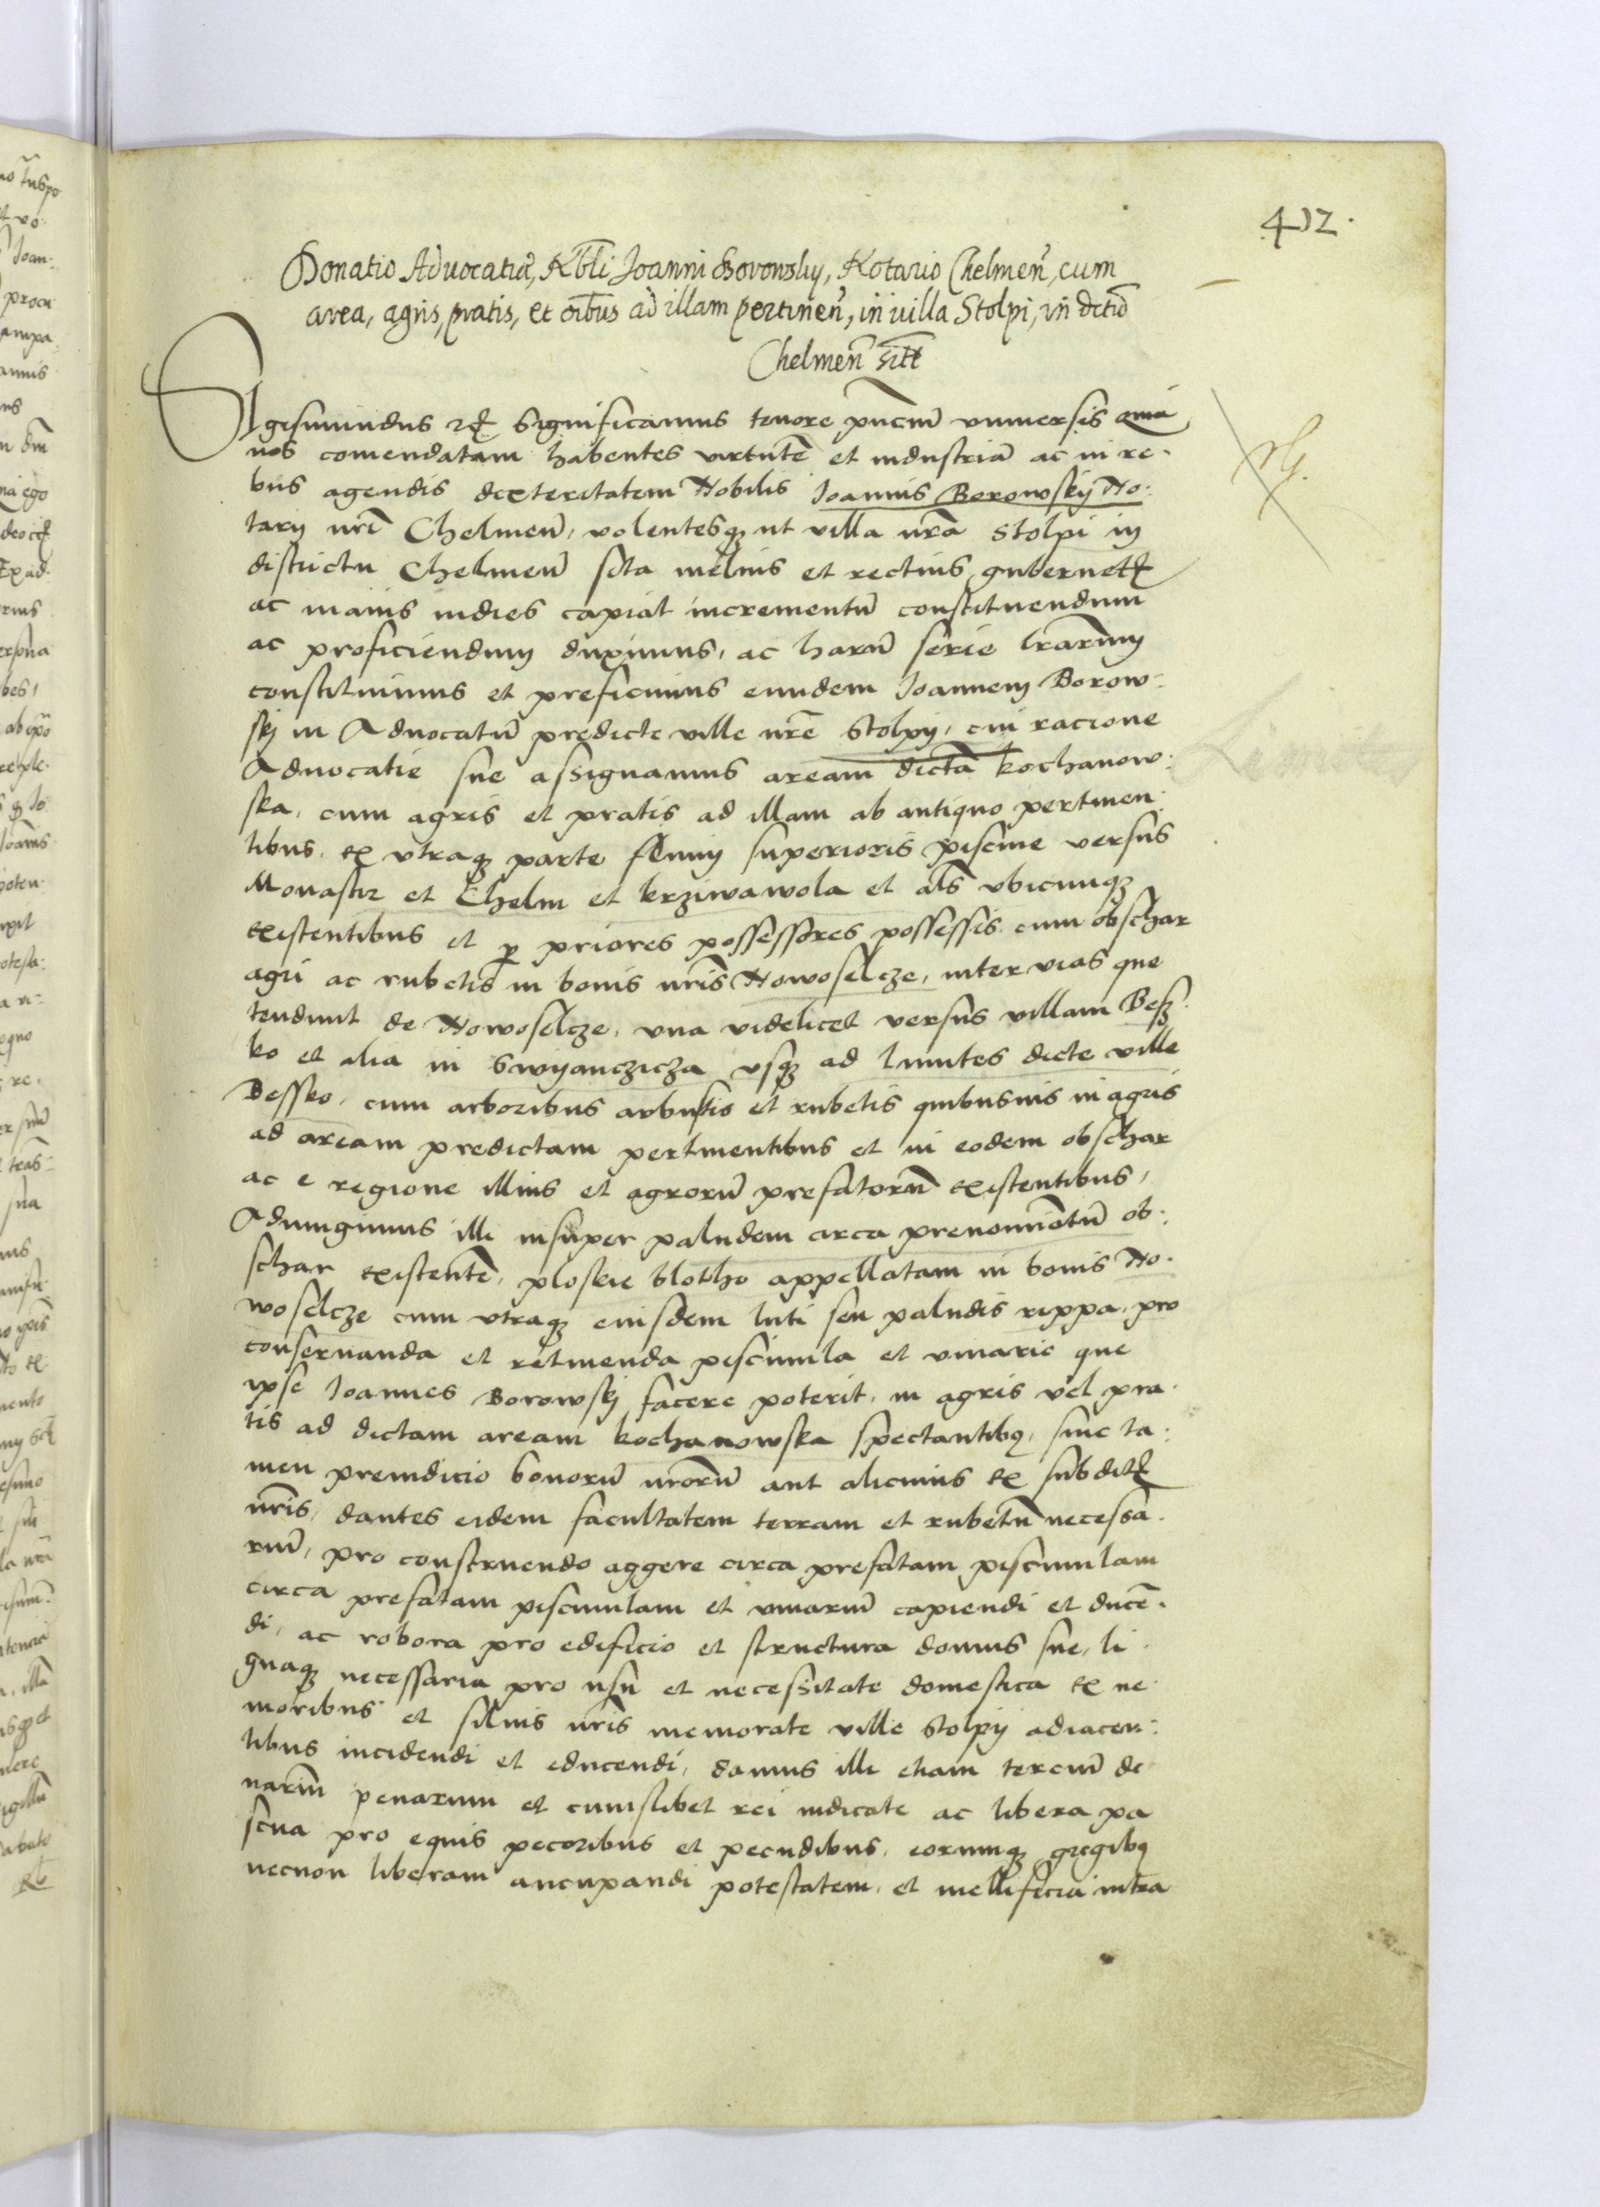 412.
Donatio Advocatiæ, Nobli Joanni Borowsky, Notario Chelmen̄, cum
area, agris, pratis, et oībus ad illam pertinen̄, in villa Stolpi, in dictiō
Chelmen̄
Sigismundus &c significamus tenore pn̄cium universis quia
nos comendatam habentes virtutē et industriā ac in re-
bus agendis dexteritatem Nobilis Joannis Borowskij No:
tarij nrī Chelmen̄, volentesq ut villa nrā Stolpi in
districtu Chelmen̄ sita melius et rectius gubernetr
ac maius indies capiat incrementū constituendum
ac proficiendum duximus, ac harū serie lrarum
constituimus et preficimus eundem Joannem Borow:
skj in Advocatū predicte ville nrē Stolpij, cui racione
Advocatie sue assignamus aream dictā Kochanow:
ska, cum agris et pratis ad illam ab antiquo pertinen:
tibus, ex utraq parte flenni superioris piscine versus
Monastir et Chelm et krziwawola et als̄ ubicunq
existentibus et p priores possessores possessis cum obschar
agri ac rubetis in bonis nrīs Nowoselcze, inter vias que
tendunt de Nowoselcze, una videlicet versus villam Besz
ko et alia in Swyanczicza usq ad limites dicte ville
Bessko, cum arboribus arbustis et rubetis quibusvis in agris
ad aream predictam pertinentibus et in eodem obschar
ac e regione illius et agrorū prefatorū existentibus,
Adiungimus illi insuper paludem circa prenominātū ob:
schar existentē, ploskie blotho appellatam in bonis No:
woselcze cum utraq eiusdem luti seu paludis rippa, pro
conservanda et retinenda piscinula et vivario que
ipse Joannes Borowskj facere poterit, in agris vel pra
tis ad dictam aream kochanowska spectantibq, sine ta:
men preiudicio bonorū nrorū aut alicuius ex subditis
nrīs, dantes eidem facultatem terram et rubetū necessa
riū, pro construendo aggere circa prefatam piscinulam
circa prefatam piscinulam et vivariū capiendi et ducē
di, ac robora pro edificio et structura domus sue, li
gnaq necessaria pro usu et necessitate domestica ex ne
moribus et silvis nrīs memorate ville Stolpij adiacen:
tibus incidendi et educendi, damus illi etiam terciū de
nariū penarum et cuiuslibet rei iudicate ac libera pa
scua pro equis pecoribus et pecudibus, eorumq gregibq
necnon liberam aucupandi potestatem, et mellificia intra